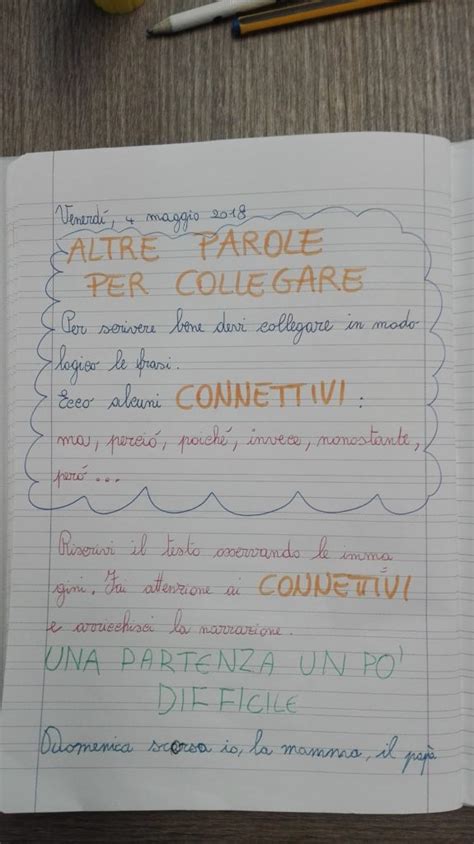 Venerdí, 4 maggio 2018
ALTRE PAROLE
PER COLLEGARE
Per scrivere bene devi collegare in modo
logico le frasi.
Ecco alcuni CONNETTIVI :
ma, perció, poiché, invece, nonostante,
peró ...
Riscrivi il testo osservando le imma
gini. Fai attenzione ai CONNETTIVI
e arricchisci la narrazione.
UNA PARTENZA UN PO'
DIFFICILE
Domenica scorsa io, la mamma, il papà